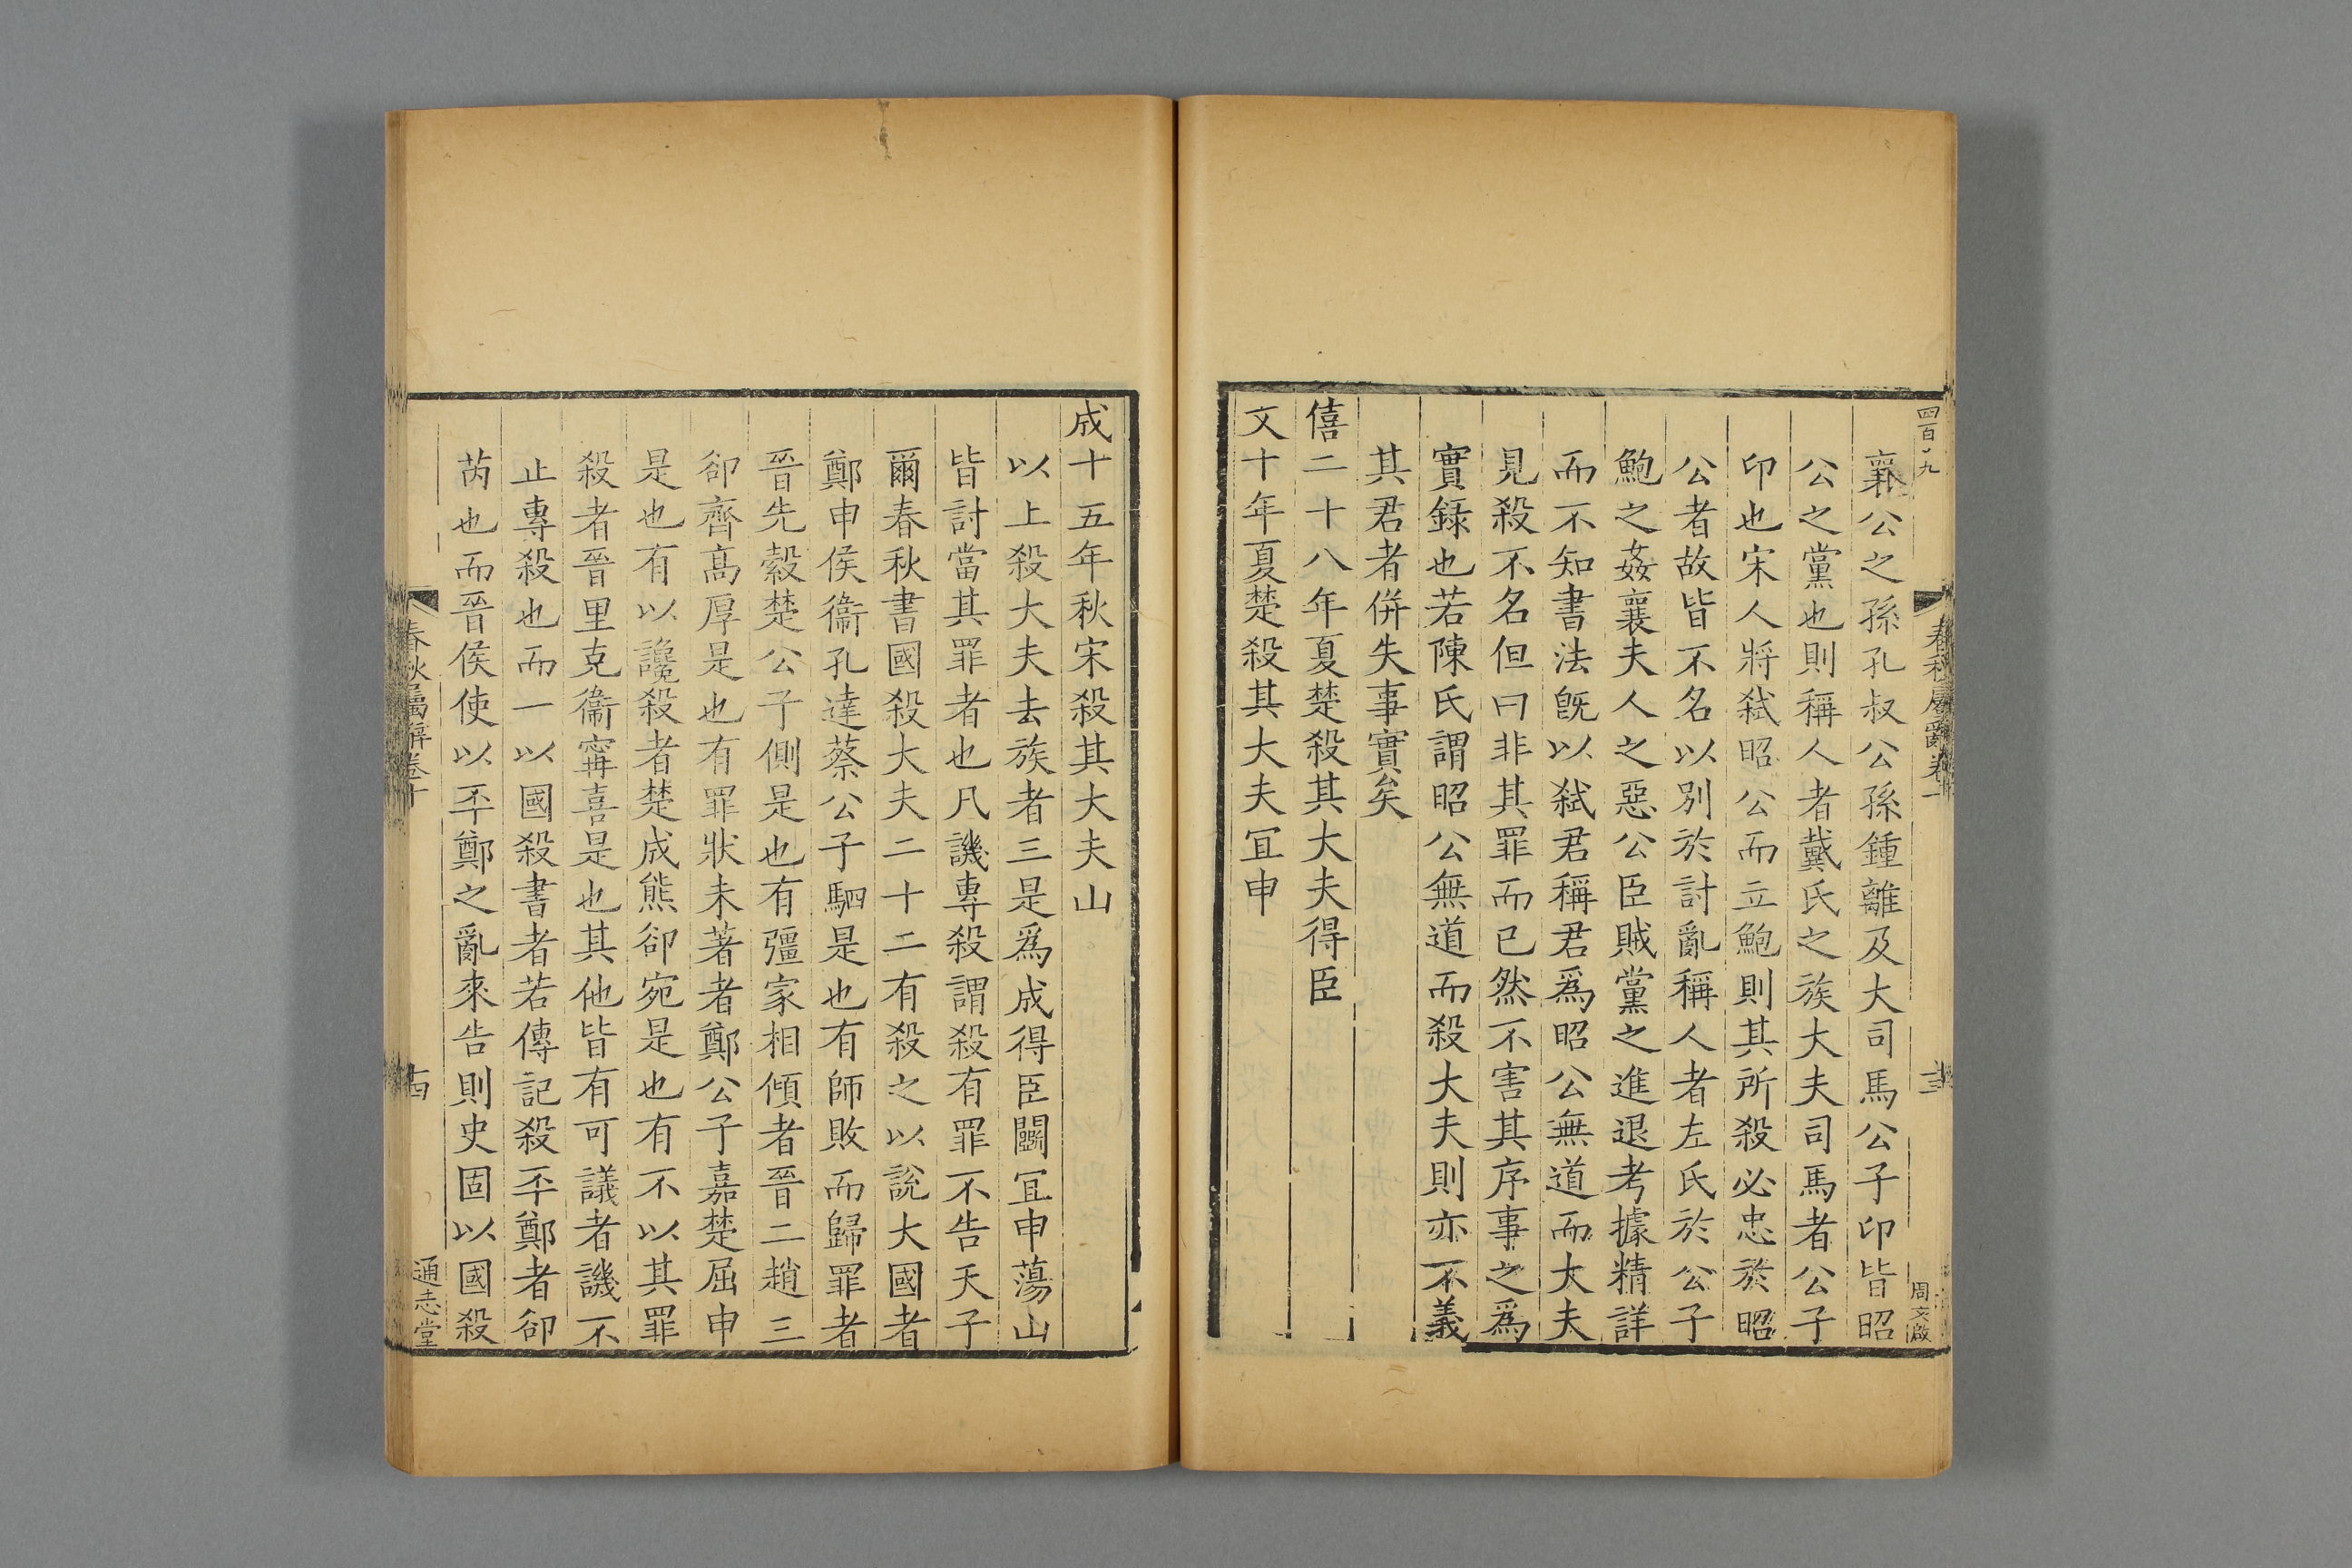 四百九
襄公之孫孔叔公孫鍾離及大司馬公子卬皆昭
公之黨也則稱人者戴氏之族大夫司馬者公子
卬也宋人將弒昭公而立鮑則其所殺必忠於昭
公者故皆不名以別於討亂稱人者左氏於公子
鮑之姦襄夫人之惡公臣賊黨之進退考據精詳
而不知書法旣以弒君稱君爲昭公無道而大夫
見殺不名但曰非其罪而已然不害其序事之爲
實録也若陳氏謂昭公無道而殺大夫則亦不義
其君者併失事實矣
僖二十八年夏楚殺其大夫得臣
文十年夏楚殺其大夫冝申
周文啟
成十五年秋宋殺其大夫山
以上殺大夫去族者三是爲成得臣鬬冝申蕩山
皆討當其罪者也凡譏專殺謂殺有罪不告天子
爾春秋書國殺大夫二十二有殺之以說大國者
鄭申侯衞孔達蔡公子駟是也有師敗而歸罪者
晉先縠楚公子側是也有彊家相傾者晉二趙三
郤齊高厚是也有罪狀未著者鄭公子嘉楚屈申
是也有以讒殺者楚成熊郤宛是也有不以其罪
殺者晉里克衞甯喜是也其他皆有可議者譏不
止專殺也而一以國殺書者若傳記殺㔻鄭者郤
芮也而晉侯使以㔻鄭之亂來告則史固以國殺
春秋屬辭卷十
十四
通志堂